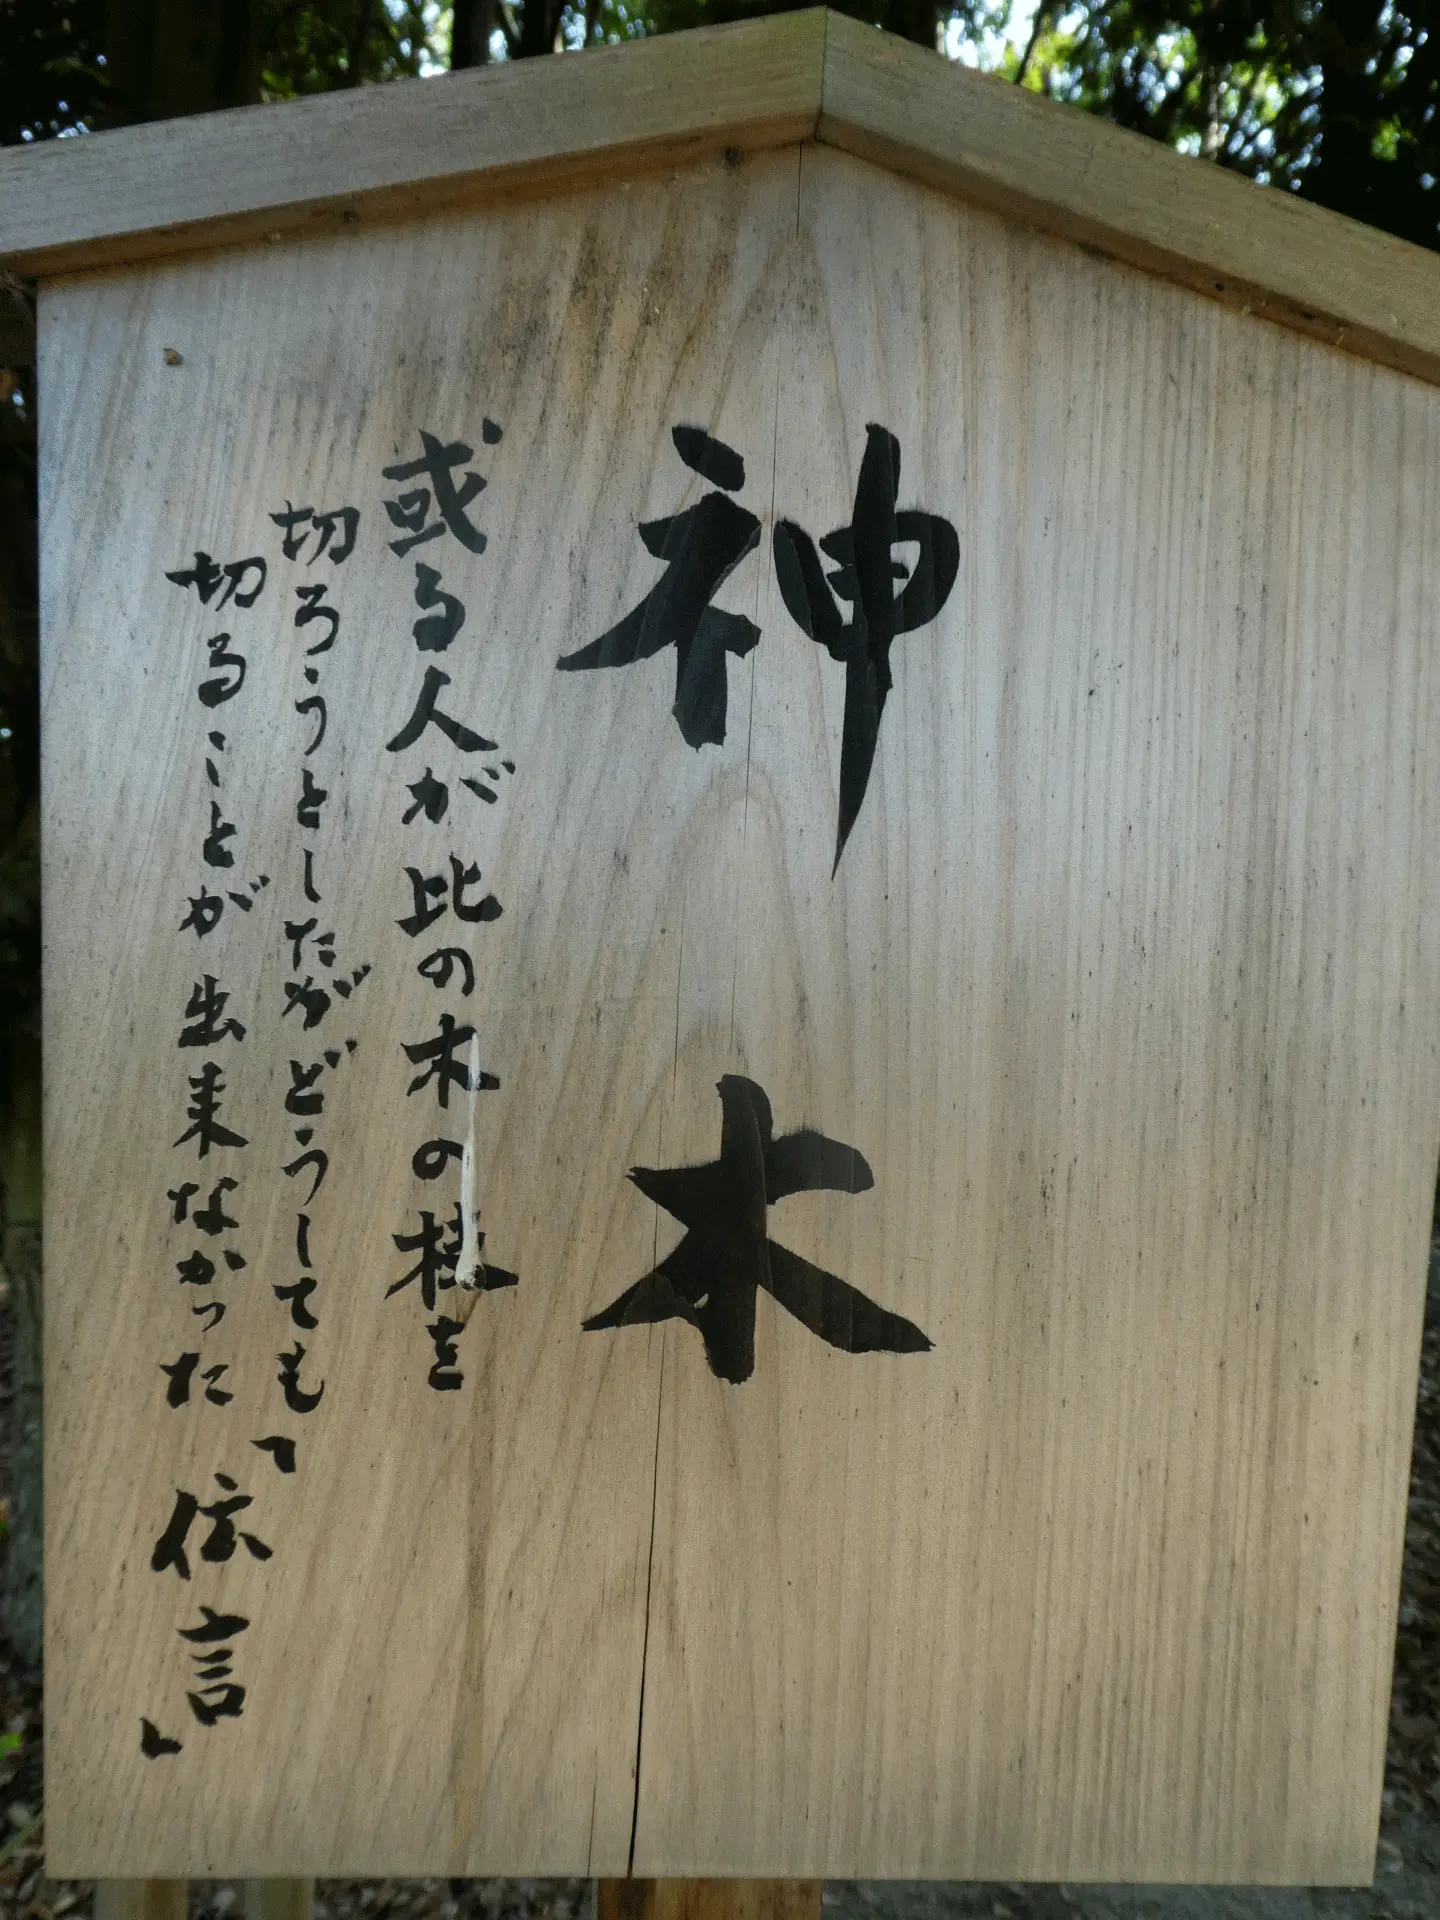 神木
或る人が比の木の枝を
切ろうとしたがどうしても
切ることが出来なかった「伝言」